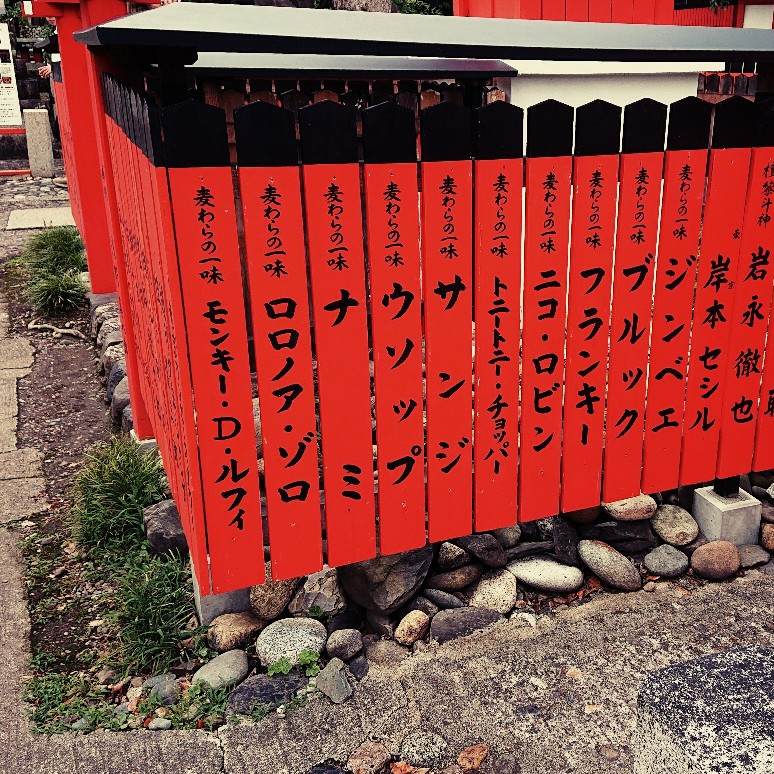 麦わらの一味 モンキー・D・ルフィ
麦わらの一味 ロロノア・ゾロ
麦わらの一味 ナミ
麦わらの一味 ウソップ
麦わらの一味 サンジ
麦わらの一味 トニートニー・チョッパー
麦わらの一味 ニコ・ロビン
麦わらの一味 フランキー
麦わらの一味 ブルック
麦わらの一味 ジンベエ
岸本セシル
岩永徹也